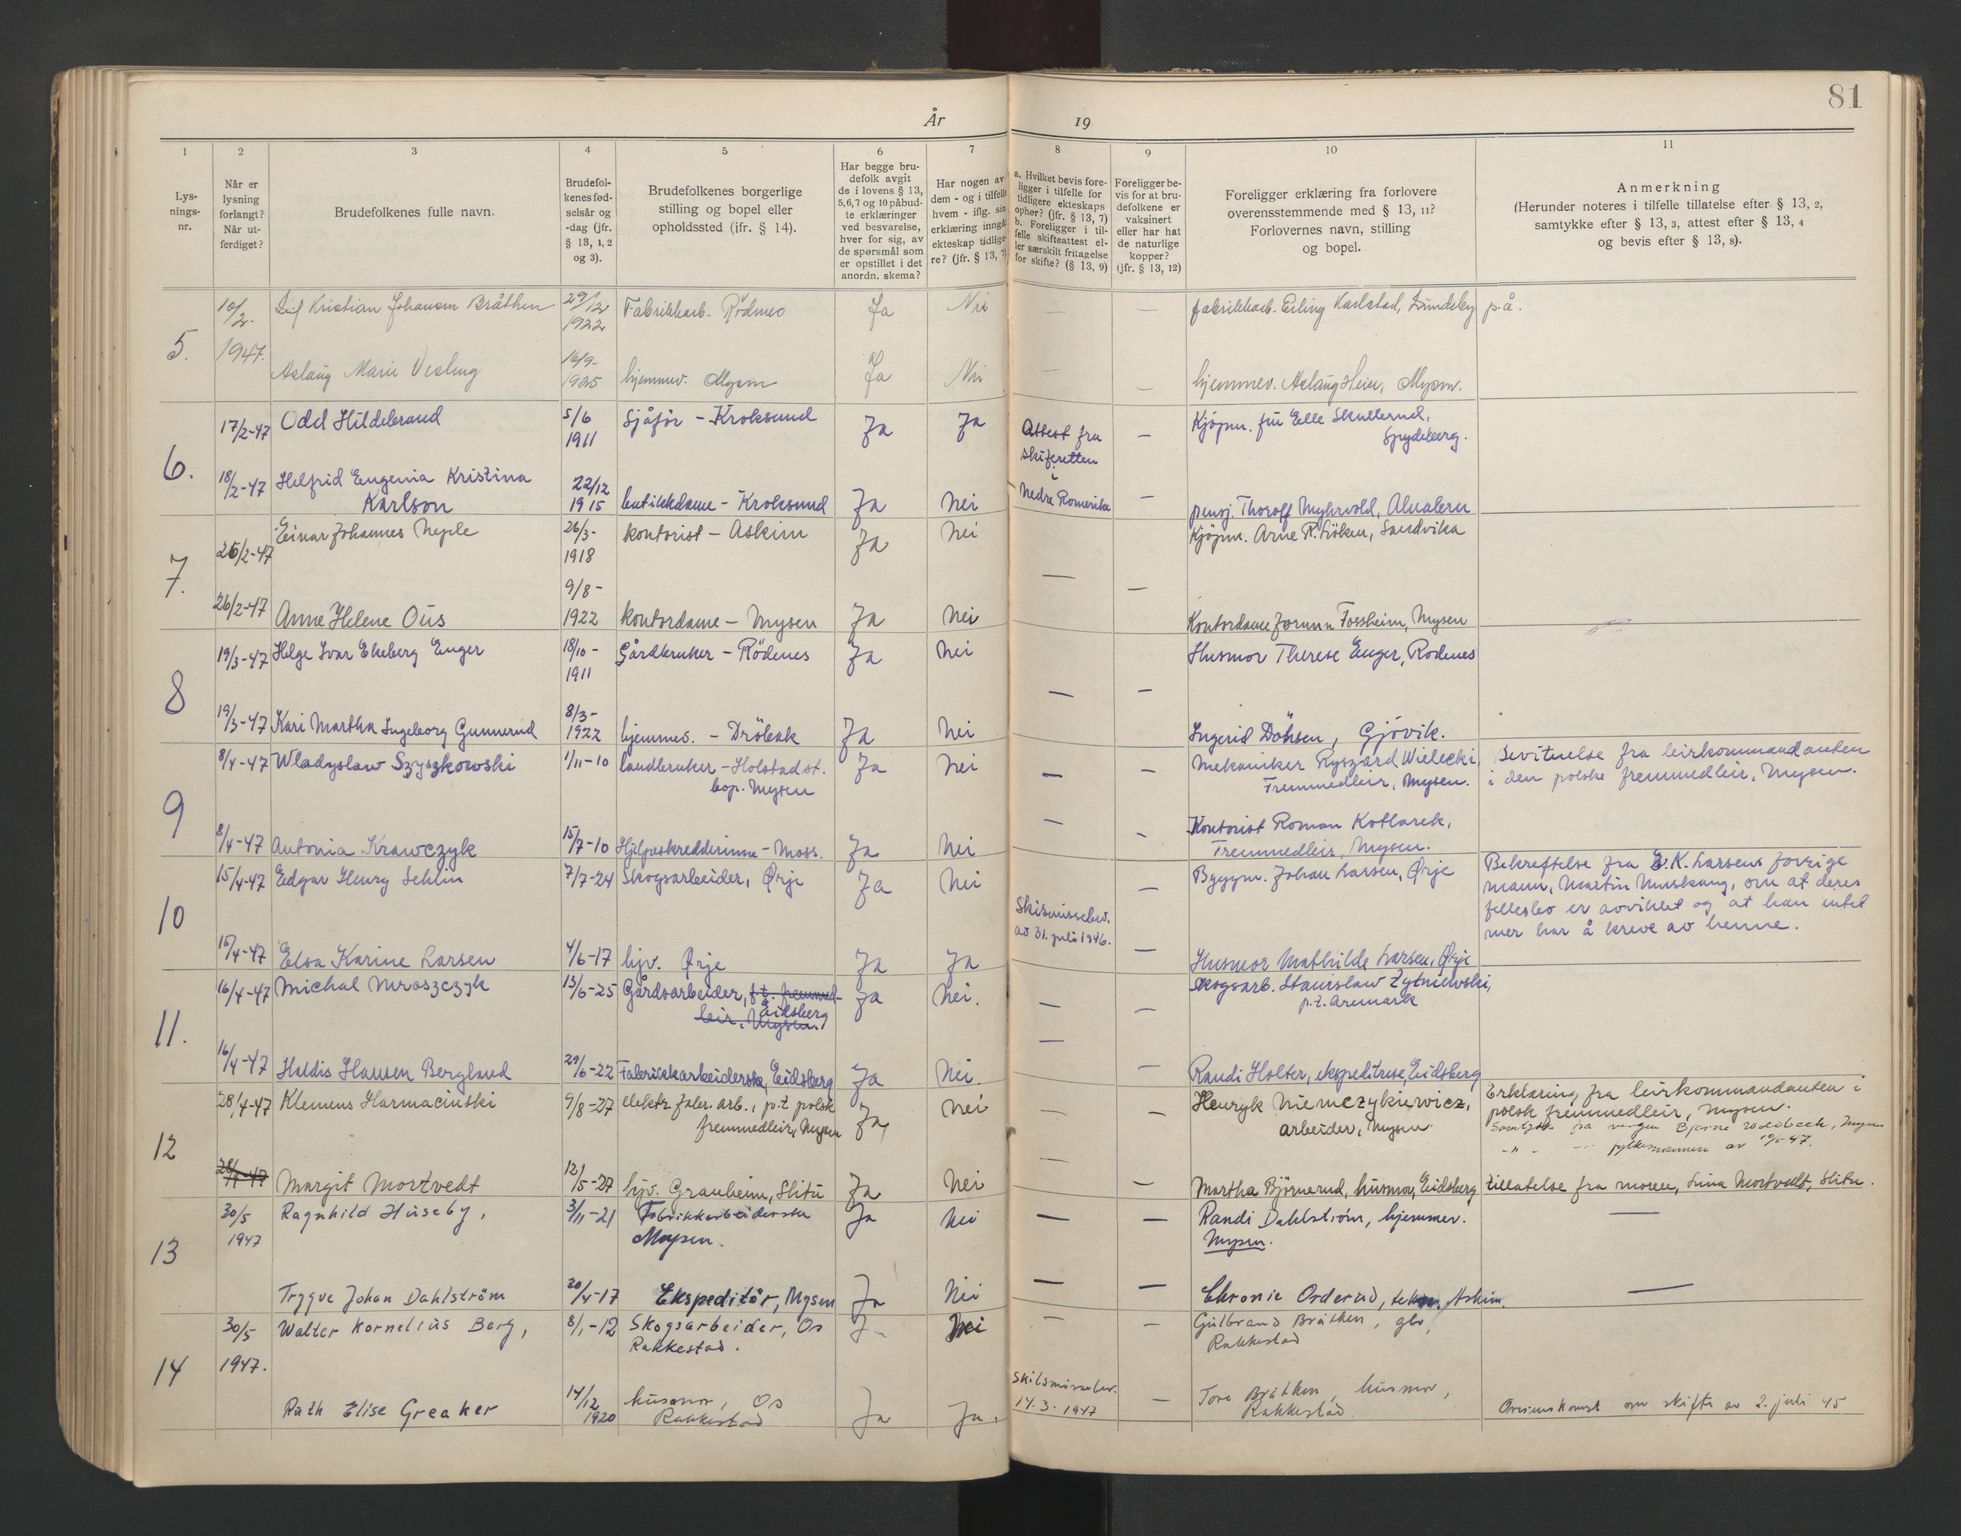 81
År 19
1 2 3 4 5 6 7 8 9 10 11
Lys-
nings-
nr.
Når er
lysning
forlangt?
Når ut-
ferdiget?
Brudefolkenes fulle navn.
Brudefol-
kenes fød-
selsår og
-dag (jfr.
§ 13, 1, 2
og 3).
Brudefolkenes borgerlige
stilling og bopel eller
opholdssted (jfr. § 14).
Har begge bru-
defolk avgit
de i lovens § 13,
5,6,7 og 10 påbud-
te erklæringer
ved besvarelse,
hver for sig, av
de spørsmål som
er opstillet i det
anordn. skema?
Har nogen av
dem - og i tilfelle
hvem - iflg. sin
erklæring inngått
ekteskap tidlige-
re? (jfr. § 13, 7)
a. Hvilket bevis fore-
ligger i tilfelle for
tidligere ekteskaps
ophør? (jfr. § 13, 7)
b. Foreligger i til-
felle skifteattest el-
ler særskilt fritagelse
for skifte? (§ 13, 9)
Foreligger be-
vis for at bru-
defolkene er
vaksinert
eller har hat
de naturlige
kopper?
(jfr. § 13, 12)
Foreligger erklæring fra forlovere
overensstemmende med § 13, 11?
Forlovernes navn, stilling
og bopel.
Anmerkning
(Herunder noteres i tilfelle tillatelse efter § 13, 2,
samtykke efter § 13, 3, attest efter § 13, 4
og bevis efter § 13, 8).
5. 10/2- Kristian Johansen Bråthen 29/12 Fabrikkarb. Rödenes Ja Nei — — fabrikkarb. Erling Karlstad, Lundeby p.å.
1922
1947. Aslaug Marie Vesleng 16/9- hjemmev. Mysen Ja Nei — — hjemmev. Aslaug Heier, Mysen.
1925
6. 17/2-47 Odd Hildebrand 5/6 Sjåför - Kroksund Ja Ja Attest fra — Kjöpm. Elle Skullerud,
1911 skiferetten Spydeberg.
i
18/2-47 Helfrid Eugenia Kristina 22/12
Karlson 1915 butikkdame - Kroksund Ja Nei Nedre Romerike — pensj. Thorolf Myhrvold,
7. 26/2-47 Einar Johannes Neple 26/3- kontorist - Askim Ja Nei — — Kjöpm. Arne R. Löken, Sandvika
1918
26/2-47 Anne Helene Ous 9/8- kontordame - Mysen Ja Nei Kontordame Jorunn Fossheim, Mysen
1922
8 19/3-47 Helge Ivar Ekeberg Enger 18/10- Gårdbruker - Rödenes Ja Nei — — Husmor Therese Enger, Rödenes
1911
19/3-47 Kari Martha Ingeborg Gunnerud 8/3- hjemmev. - Dröbak Ja Nei Ingerid Döhsen, Gjövik.
1922
9 8/4-47 Wladyslaw Szyszkowski 1/11-10 landbruker - Holstadst. Ja Nei — — Mekaniker Ryszard Wielecki, Bevitnelse fra leirkommandanten
bop. Mysen Fremmedleir, Mysen. i den polske fremmedleir, Mysen.
8/4-47 Antonia Krawczyk 15/7-10 Hjelpeskredderinne - Moss. Ja Nei — — Kontorist Roman Kotlarek,
Fremmedleir, Mysen.
10 15/4-47 Edgar Henry Sehlin 7/7-24 Skogsarbeider, Ørje Ja Nei — Byggm. Johan Larsen, Ørje Bekreftelse fra E.K. Larsens forrige
mann, Martin om at deres
fellesbo er avviklet og at han intet
mer har å kreve av henne.
15/4-47 Elsa Karine Larsen 4/6-17 hjv. Ørje Ja Ja Skilsmissebev. av 31. juli 1946. — Husmor Mathilde Larsen, Ørje
11. 16/4-47 Michal Mroszczyk 13/6-25 Gårdsarbeider, p.t. fremmed- Ja Nei. — — Skogsarb. Stanislaw Zytniewski,
leir, Mysen. Eidsberg p.t. Aremark
16/4-47 Haldis Hansen Berglund 29/6-22 Fabrikkarbeiderske, Eidsberg Ja Nei. — — Randi Holter, ekspeditrise, Eidsberg
12 28/4-47 Klemens Harmacinski 9/8-27 elektr. faber. arb., p.t. polsk Ja Nei — — Henryk Niemczykiewicz, Erklæring fra leirkommandanten i
fremmedleir, Mysen arbeider, Mysen polsk fremmedleir, Mysen.
Samtykke fra vergen Bjarne Woldbeck, Mysen
-"- fylkesmannen av 10/5-47.
28/4-47 Margit Mortvedt 12/5-27 hjv. Grauheim, Slitu Ja Nei — — Martha Björnerud, husmor, Eidsberg tillatelse fra moren, Lina Mortvedt, Slitu.
13 30/5 Ragnhild Huseby, 3/11-21 Fabrikkarbeiderske Ja Nei — — Randi Dahlström, hjemmev. —
1947 Mysen. Mysen.
Trygve Johan Dahlström 20/4-17 Ekspeditör, Mysen Ja Nei — — Chronie Orderud, Askim. —
14 30/5 Walter Kornelius Berg, 8/1-12 Skogsarbeider, Os Ja Nei — — Gulbrand Bråthen, gbr,
1947. Rakkestad. Rakkestad
Ruth Elise Greaker 14/12 husmor, Os Ja Ja. Skilsmissebev. — Tora Bråthen, husmor,
1920 Rakkestad 14.3.1947 Rakkestad. Overenskomst om skifte av 2. juli 45